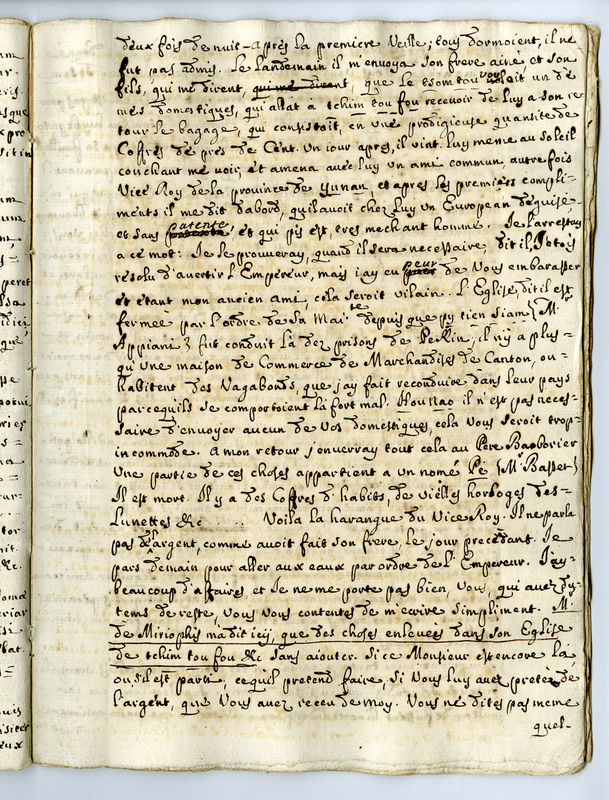 deux fois de nuit - Après la premiere Veille; tous dormoient, il ne
fut pas admis. Le Landemain il m'envoya son frere ainé et son
fils, qui me dirent, qui me dirent, que le tsom tou vouloit un de
mes domestiques, qui allat à tchim tou fou recevoir de luy a son re
tour le bagage, qui consistoit, en une prodigieuse quantité de
Coffres de près de Cent. Un iour apres, il vint luy meme au soleil
couchant me voir, et amena avec luy un ami commun autrefois
Vice Roy de la province de yunan, et apres les premiers compli-
ments il me dit dabord, quil avoit chez luy un European deguisé
et sans patente, et qui pis est, tres mechant homme. Je l'arrestay
a ce mot: Je le prouveray, quand il sera necessaire, dit il, J'etois
resolu d'avertir l'Empereur, mais jay eu peur de Vous embarasser
et étant mon ancien ami, cela seroit vilain. L'Eglise, dit il est
fermée par l'ordre de sa Mai.te depuis que py tien siam { M.r
Appiani } fut conduit là dez prisons de Pekin; il n'y a plus-
qu'une maison de Commerce de Marchandises de Canton, ou-
habitent des Vagabonds, que j'ay fait reconduire dans leur pays
parcequ'ils se comportoient là fort mal. Hou nao il n'est pas neces-
saire d'envoyer aucun de vos domestiques, cela vous seroit trop-
incommode. A mon retour j'enverray tout cela au Pere Baoborier
Une partie de ces choses appartient a un nomé Pe { M.r Basset }
Il est mort. Il y a des Coffres d'habits, de vielles horloges des-
Lunettes &c .... Voila la harangue du Vice Roy. Il ne parla
pas d'argent, comme avoit fait son frere, le jour precedant. Je
pars demain pour aller aux eaux par ordre de l'Empereur. J'ay-
beaucoup d'affaires et Je ne me porte pas bien, Vous, qui avez du-
tems de reste, Vous Vous contentez de m'ecrire simpliment. M.r
de Miriophis m'a dit icij, que des choses enlevées dans son Eglise
de tchim tou fou &c sans aiouter. Si ce Monsieur est encore la
ou s'il est parti, ce qu'il pretend faire, si Vous luy avez preté de
l'argent, que Vous avez receu de moy. Vous ne dites pas meme
quel-